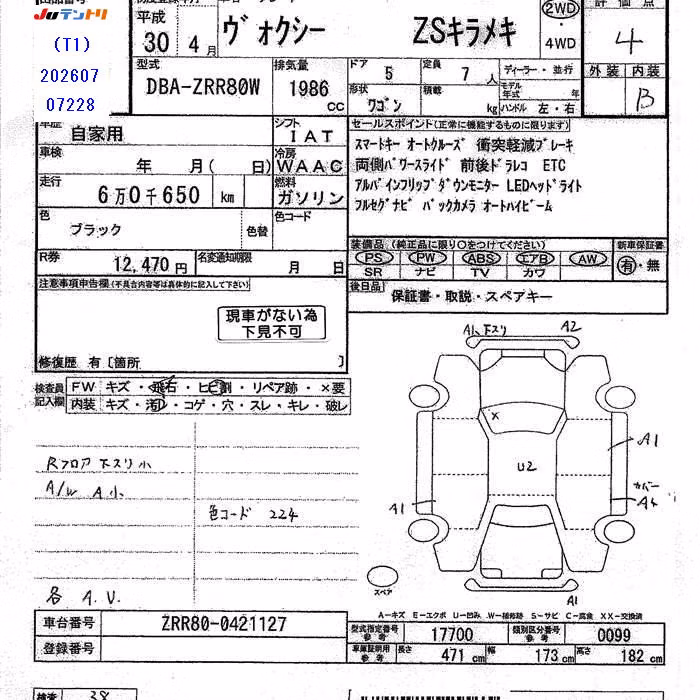 出品番号
JUテントリ
(T1)
202607
07228
平成
30 年 4 月
ヴォクシー ZSキラメキ
2WD
・
4WD
評価点
4
外装 内装
B
型式
DBA-ZRR80W
排気量
1986 cc
ドア 5
定員 7 人
形状 ワゴン
積載 kg
ディーラー・並行
モデル年式 年
ハンドル 左・右
車歴 自家用
シフト IAT
車検 年 月( 日)
冷房 WAAC
走行 6万0千650 km
燃料 ガソリン
色 ブラック 色替
色コード
R券 12,470 円
名変通知期限 月 日
セールスポイント(正常に機能するものに限ります)
スマートキー オートクルーズ 衝突軽減ブレーキ
両側パワースライド 前後ドラレコ ETC
アルパインフリップダウンモニター LEDヘッドライト
フルセグナビ バックカメラ オートハイビーム
装備品(純正品に限り○をつけてください) 新車保証書
PS PW ABS エアB AW
SR ナビ TV カワ
有・無
後日品 保証書・取説・スペアキー
注意事項申告欄(不具合内容等は具体的に記入して下さい)
現車がない為
下見不可
修復歴 有〔箇所 〕
検査員記入欄
FW キズ・飛石・ヒビ割・リペア跡・×要
内装 キズ・汚れ・コゲ・穴・スレ・キレ・破レ
Rフロア下スリ小
A/W A小
色コード 224
各 A.V.
A1、下スリ A2
×
U2
A1
カバー
A1
A1
スペア
A1
A-キズ E-エクボ U-凹み W-補修跡 S-サビ C-腐食 XX-交換済
車台番号 ZRR80-0421127
登録番号
型式指定番号 参考 17700
類別区分番号 参考 0099
車庫証明用 参考 長さ 471 cm 幅 173 cm 高さ 182 cm
検査 38